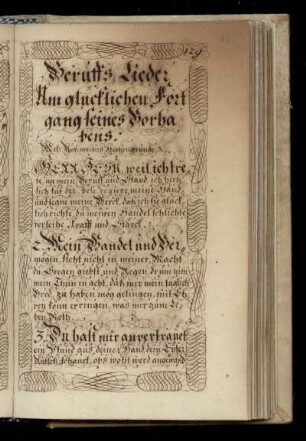 129
Beruffs Lieder
Um glücklichen Fort
gang seines Vorha
bens.
Mel.
HERR JESU, weil ich tre
te, an mein Beruff und Stand, ich hertz
lich für dir, regiere meine Hand,
und segne meine Werck, daß ich sie glück
lich richte, zu meinen Handel schlichte
verleihe Krafft und Stärck.
2. Mein Wandel und Ver
mögen, steht nicht in meiner Macht,
du Seegen giebst und Regen, drum nim
mein Thun in acht, daß mir mein täglich
Brod, zu haben mög gelingen, mit Eh
ren könn erringen, was mir zum Le
ben Noth.
3. Du hast mir anvertrauet
ein Pfund aus deiner Hand, dein Eyfer
schauet, obs wohl werd angewand